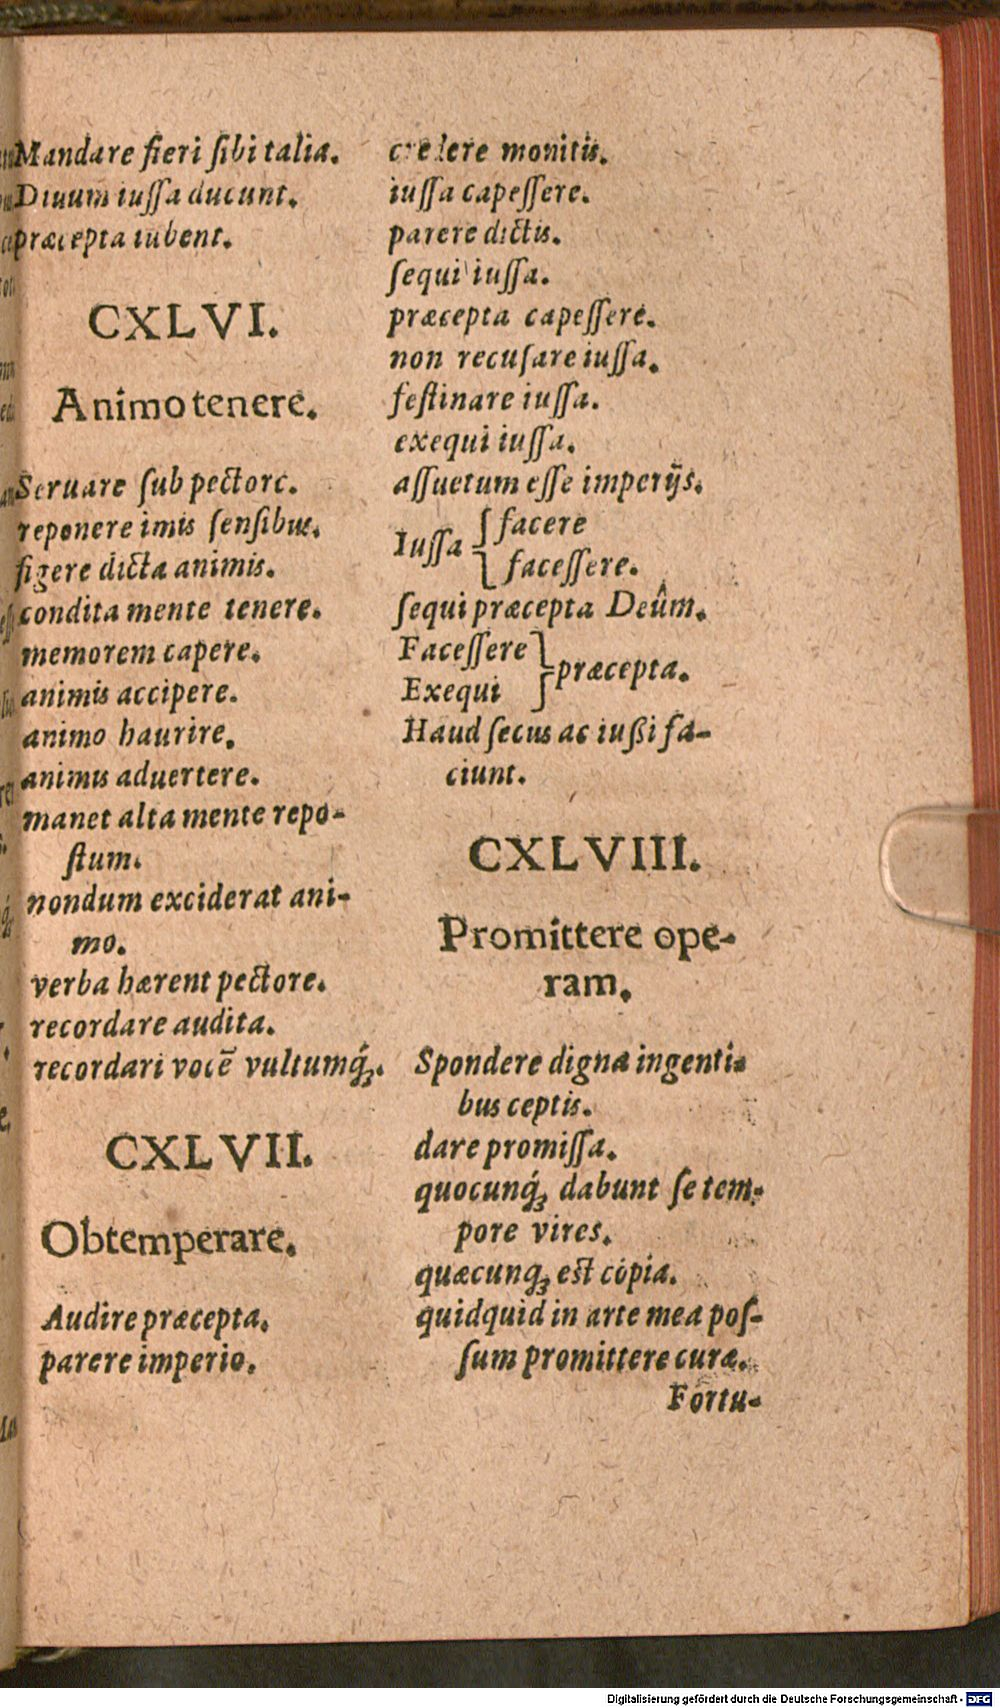 Mandare fieri ſibi talia.
Diuum iuſſa ducunt.
præcepta iubent.
CXLVI.
Animo tenere.
Seruare ſub pectore.
reponere imis ſenſibus.
figere dicta animis.
condita mente tenere.
memorem capere.
animis accipere.
animo haurire.
animis aduertere.
manet alta mente repo-
ſtum.
nondum exciderat ani-
mo.
verba hærent pectore.
recordare audita.
recordari vocē vultumq́ꝫ.
CXLVII.
Obtemperare.
Audire præcepta.
parere imperio.
credere monitis.
iuſſa capeſſere.
parere dictis.
ſequi iuſſa.
præcepta capeſſere.
non recuſare iuſſa.
feſtinare iuſſa.
exequi iuſſa.
aſſuetum eſſe imperijs.
Iuſſa { facere
faceſſere.
ſequi præcepta Deûm.
Faceſſere
Exequi } præcepta.
Haud ſecus ac iußi fa-
ciunt.
CXLVIII.
Promittere ope-
ram.
Spondere digna ingenti-
bus ceptis.
dare promiſſa.
quocunq́ꝫ dabunt ſe tem-
pore vires.
quæcunqꝫ eſt copia.
quidquid in arte mea poſ-
ſum promittere curæ.
Fortu-
Digitalisierung gefördert durch die Deutsche Forschungsgemeinschaft - DFG